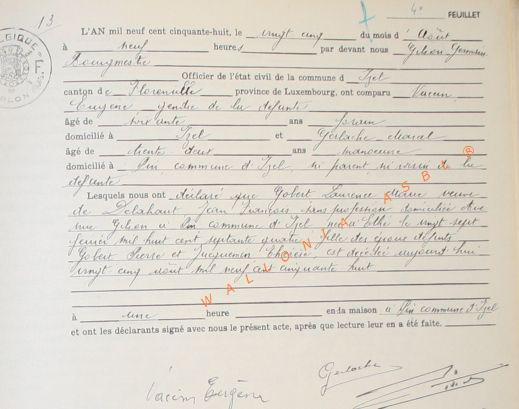 13
4e FEUILLET
L'AN mil neuf cent cinquante-huit, le vingt cinq du mois d'Août
à neuf heures par devant nous Gihon Germain
Bourgmestre
Officier de l'état civil de la commune d'Izel
canton de Florenville province de Luxembourg, ont comparu Vacuin
Eugène gendre de la défunte
âgé de soixante ans
domicilié à Izel et Gerlache Marcel
âgé de trente ans manoeuvre
domicilié à Pin commune d'Izel, ni parent ni voisin de la
défunte
Lesquels nous ont déclaré que Gobert Laurence Marie veuve
de Delahaut Jean François sans profession domiciliée
rue Gihon à Pin commune d'Izel, née le vingt sept
février mil huit cent septante quatre, fille des époux défunts
Gobert Pierre et Jacquemin Thérèse, est décédée aujourd'hui
vingt cinq août mil neuf cent cinquante huit
à une heure en da maison à Pin commune d'Izel
et ont les déclarants signé avec nous le présent acte, après que lecture leur en a été faite.
Gerlache
Eugène
WALLONIA ASBL ®